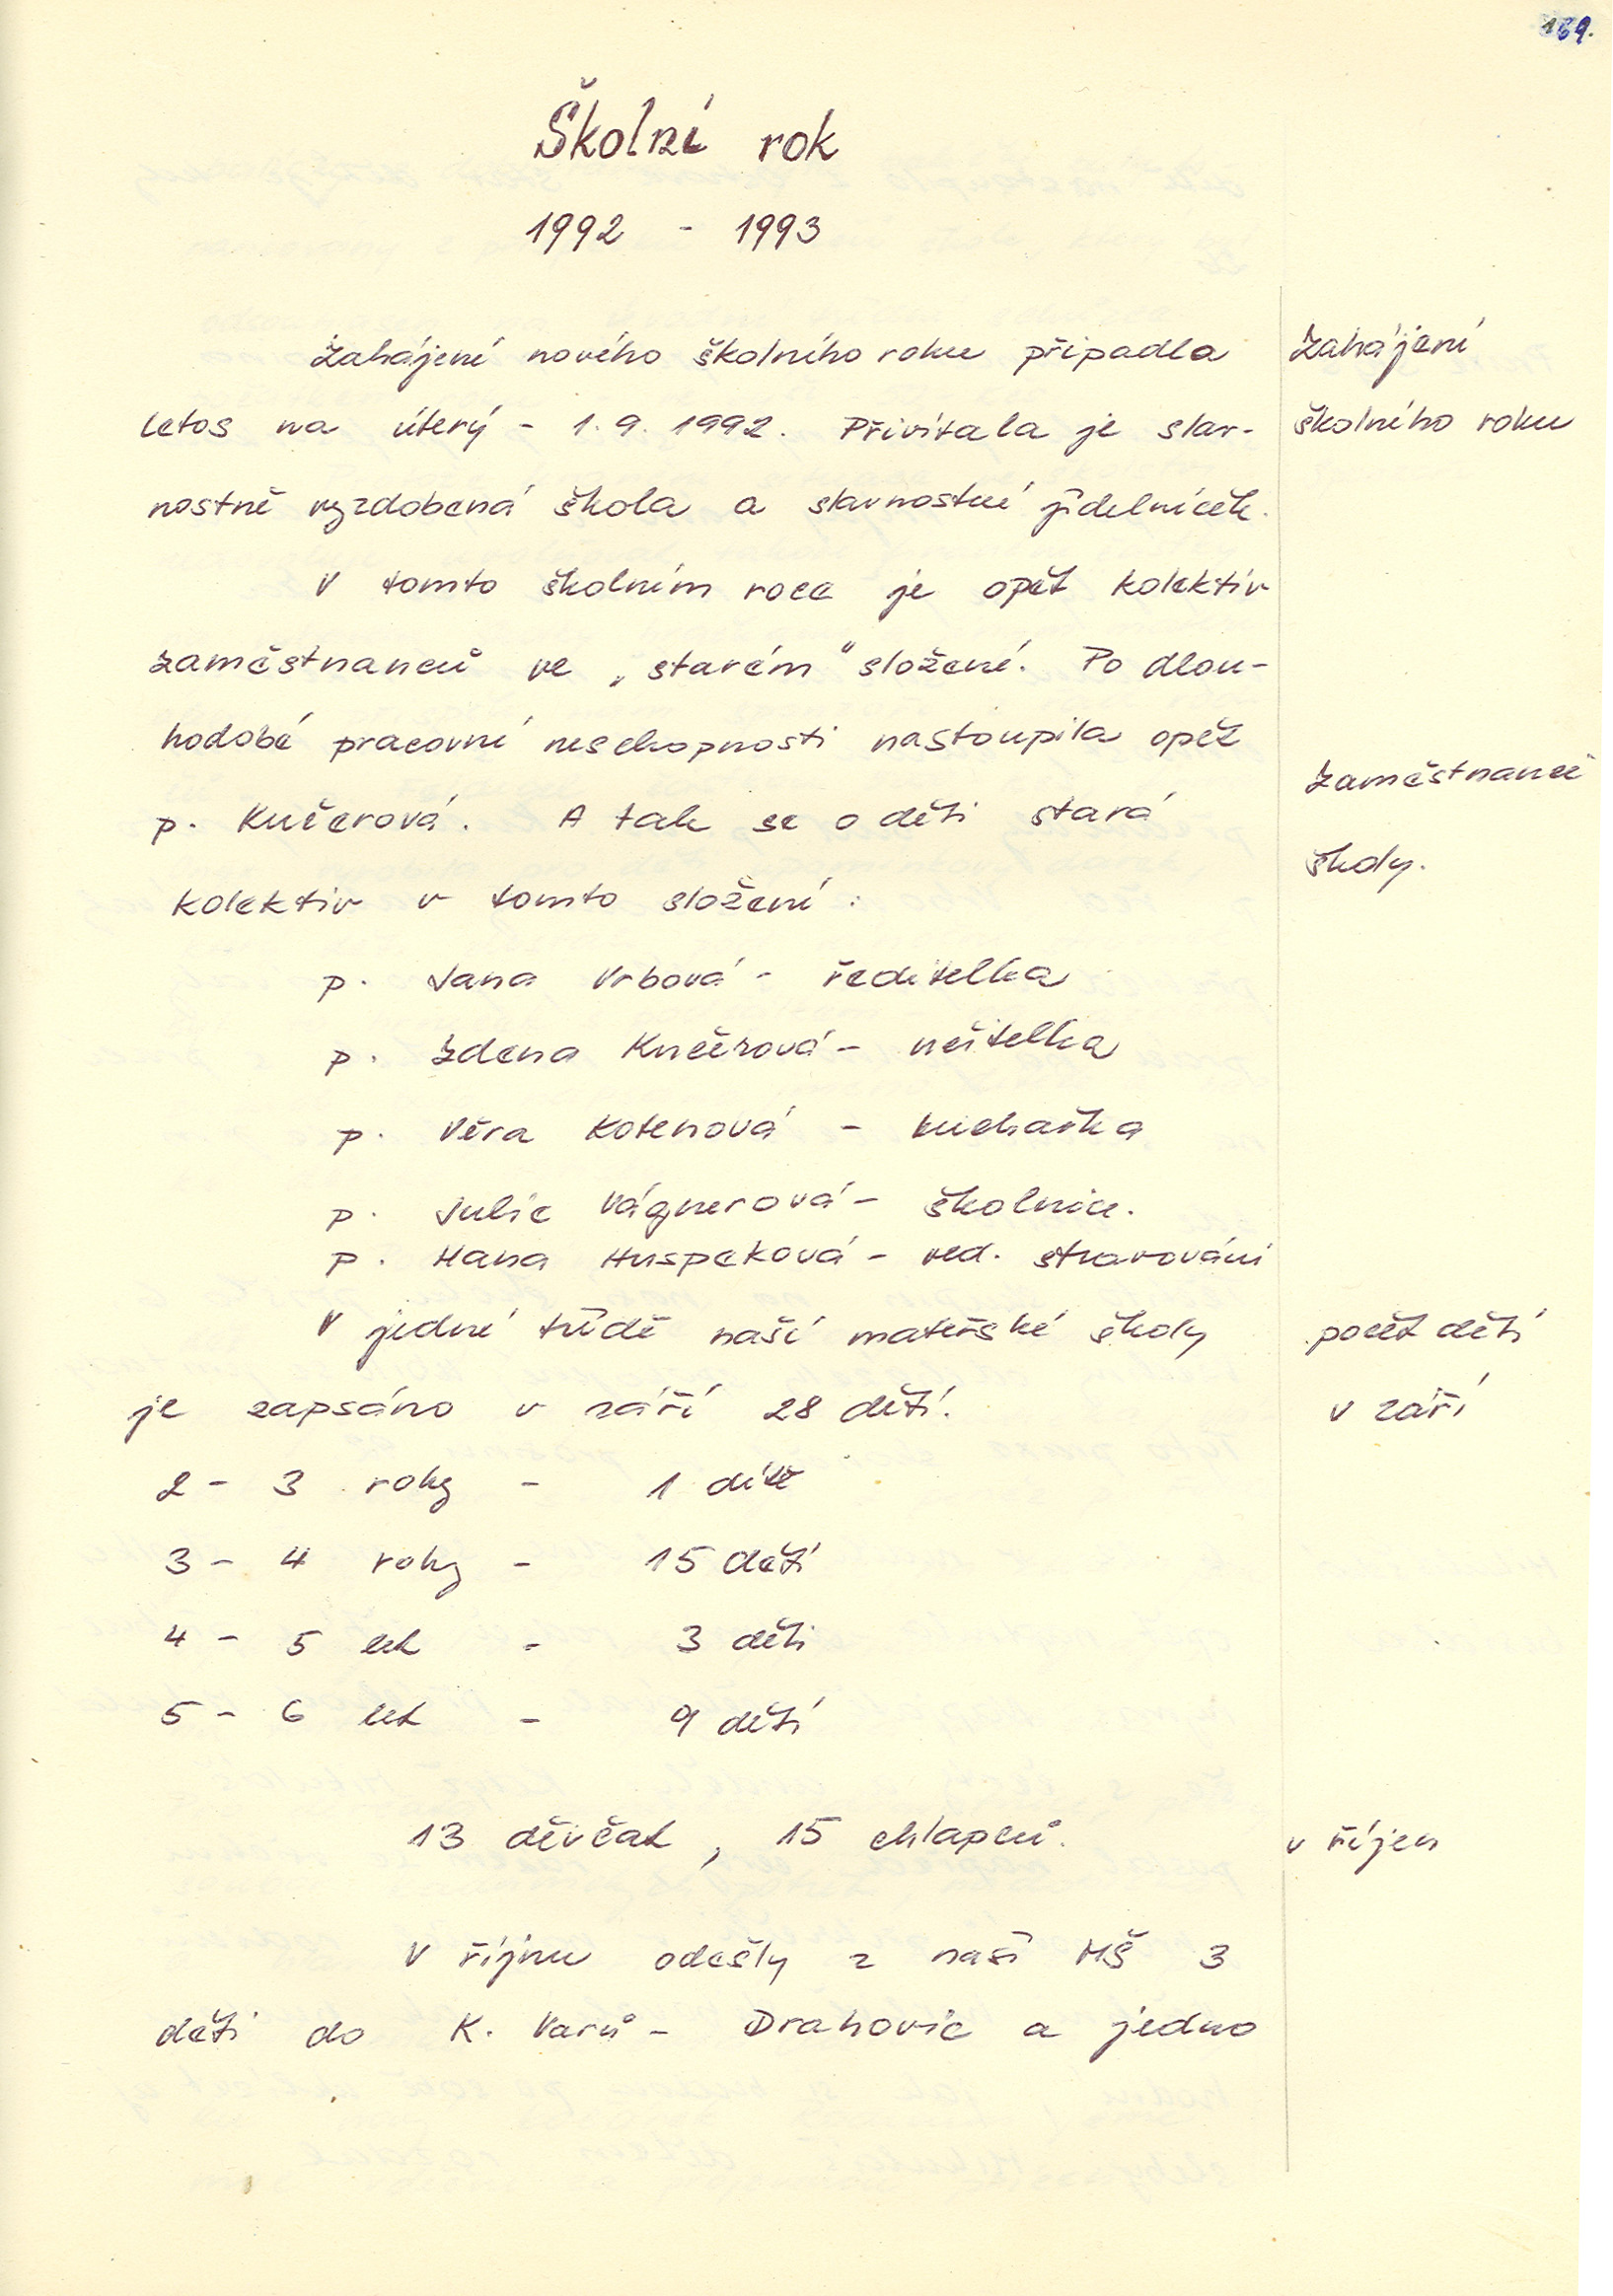 169.
Školní rok
1992 - 1993
Zahájení nového školního roku připadla
letos na úterý - 1.9.1992. Přivítala je slav-
nostně vyzdobená škola a slavnostní jídelníček.
V tomto školním roce je opět kolektiv
zaměstnanců ve „starém" složení. Po dlou-
hodobé pracovní neschopnosti nastoupila opět
p. Kučerová. A tak se o děti stará
kolektiv v tomto složení:
p. Jana Vrbová - ředitelka
p. Zdena Kučerová - učitelka
p. Věra Kotenová - kuchařka
p. Julie Vágnerová - školnice.
p. Hana Huspeková - ved. stravování
V jedné třídě naší mateřské školy
je zapsáno v září 28 dětí.
2 - 3 roky - 1 dítě
3 - 4 roky - 15 dětí
4 - 5 let - 3 děti
5 - 6 let - 9 dětí
13 děvčat, 15 chlapců.
V říjnu odešly z naší MŠ 3
děti do K. Varů - Drahovic a jedno
Zahájení
školního roku
Zaměstnanci
školy.
počet dětí
v září
v říjen